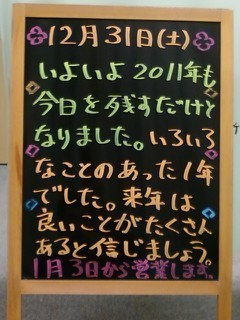 12月31日(土)
いよいよ2011年も
今日を残すだけと
なりました。いろいろ
なことのあった1年
でした。来年は
良いことがたくさん
あると信じましょう。
1月3日から営業します。